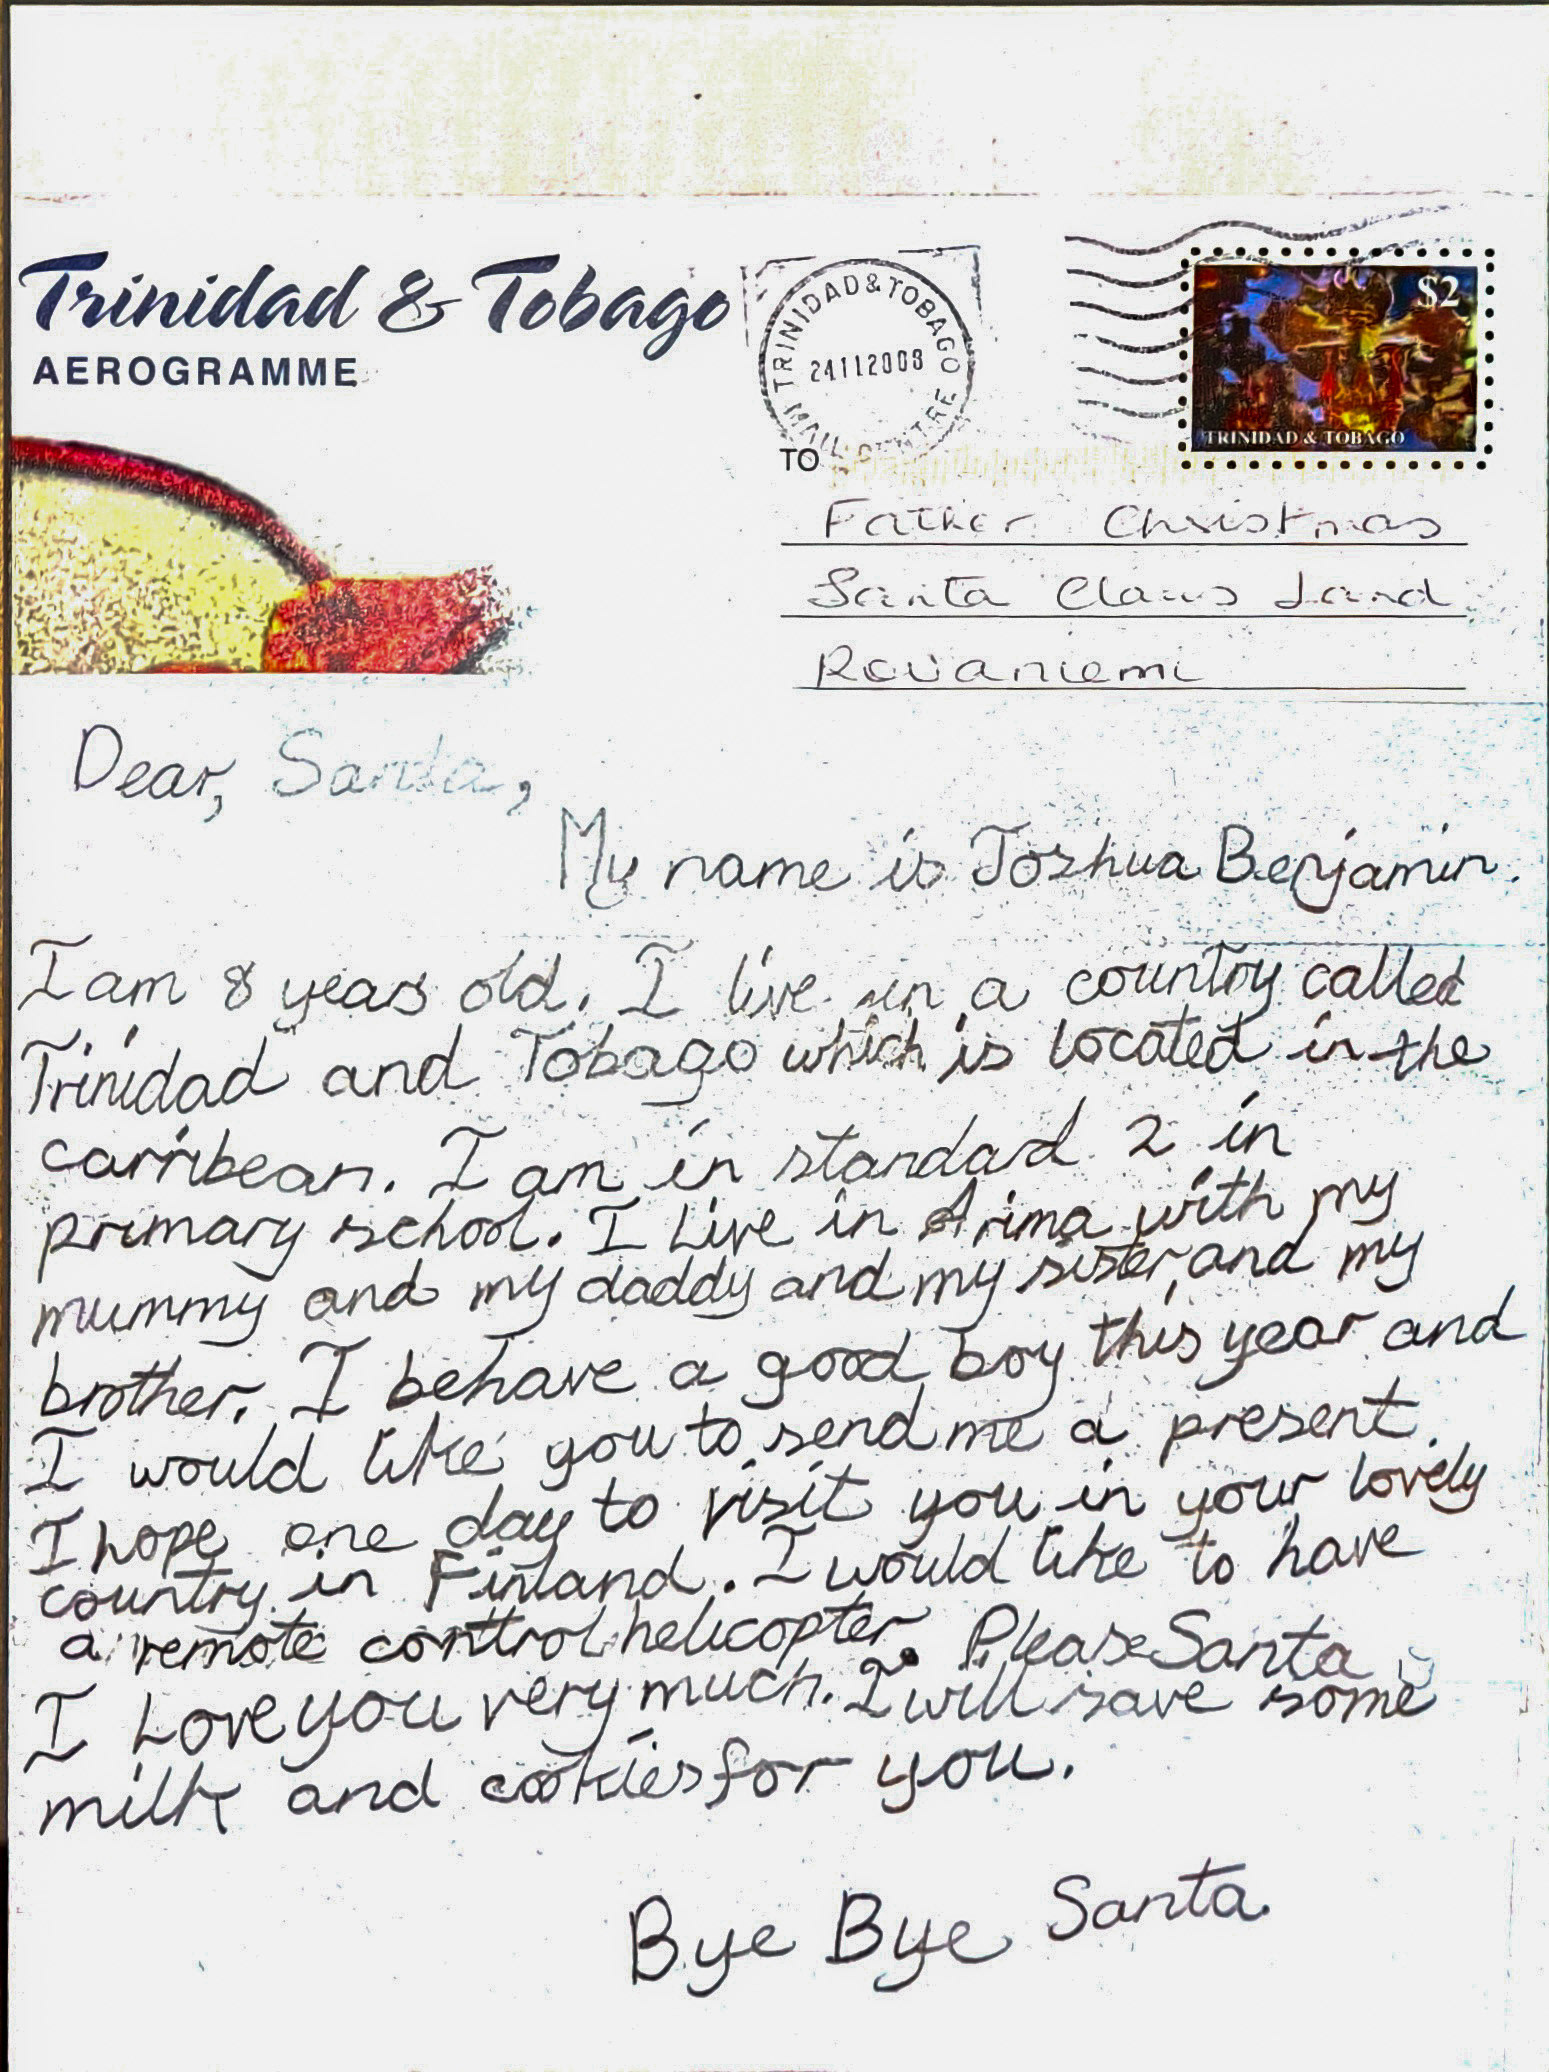 Trinidad & Tobago
AEROGRAMME
TRINIDAD & TOBAGO
24112008
MAIL CENTRE
$2
TRINIDAD & TOBAGO
TO
Father Christmas
Santa Claus Land
Rovaniemi
Dear, Santa,
My name is Joshua Benjamin.
I am 8 years old. I live in a country called
Trinidad and Tobago which is located in the
carribean. I am in standard 2 in
primary school. I Live in Arima with my
mummy and my daddy and my sister, and my
brother. I behave a good boy this year and
I would like you to send me a present.
I hope one day to visit you in your lovely
country in Finland. I would like to have
a remote control helicopter. Please Santa
I Love you very much. I will save some
milk and cookies for you.
Bye Bye Santa.